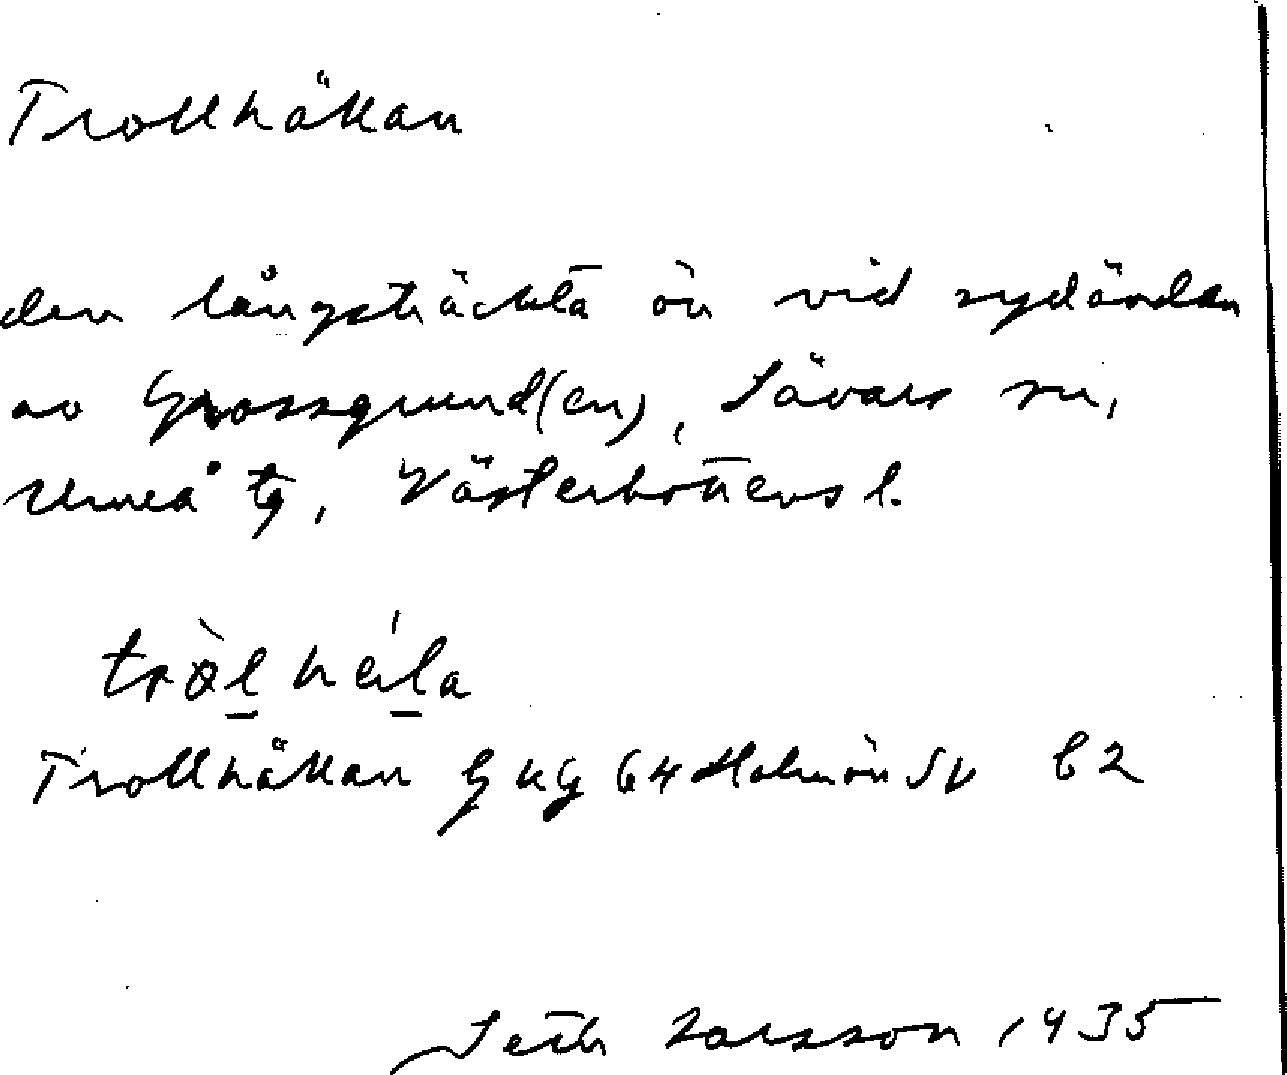 Trollhällan
den långsträckta ön vid sydändan
av Grossgrund(en), Sävars sn,
Umeå tg, Västerbottens l.
Trollhällan GKG 64 Holmön SV b2
Seth Larsson 1935